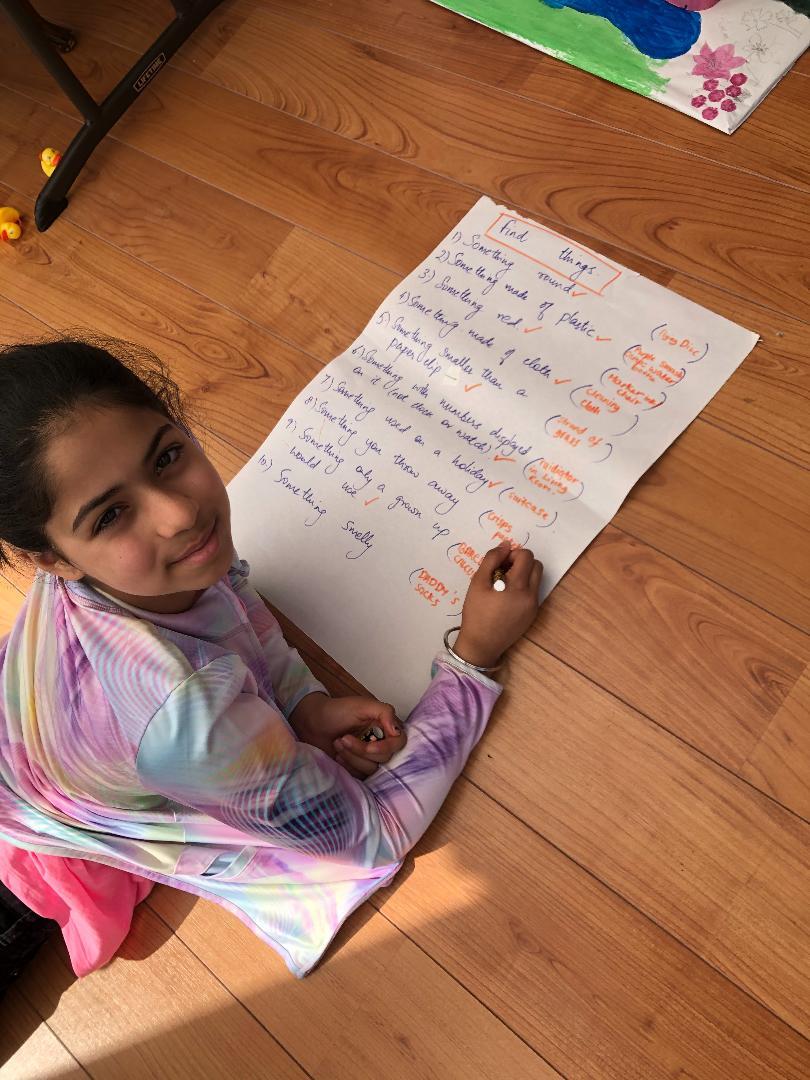 LIFETIME
Find things.
1) Something round ✓
2) Something made of plastic ✓ (
3) Something red ✓
4) Something made of cloth ✓ (cleaning cloth)
5) Something smaller than a
paper clip ✓ (strand of grass)
6) Something with numbers displayed
on it (not clock or watch) ✓ (radiator in living room)
7) Something used on a holiday ✓ (suitcase)
8) Something you throw away (crisps
9) Something only a grown up
would use ✓
10) Something smelly (DADDY'S SOCKS)